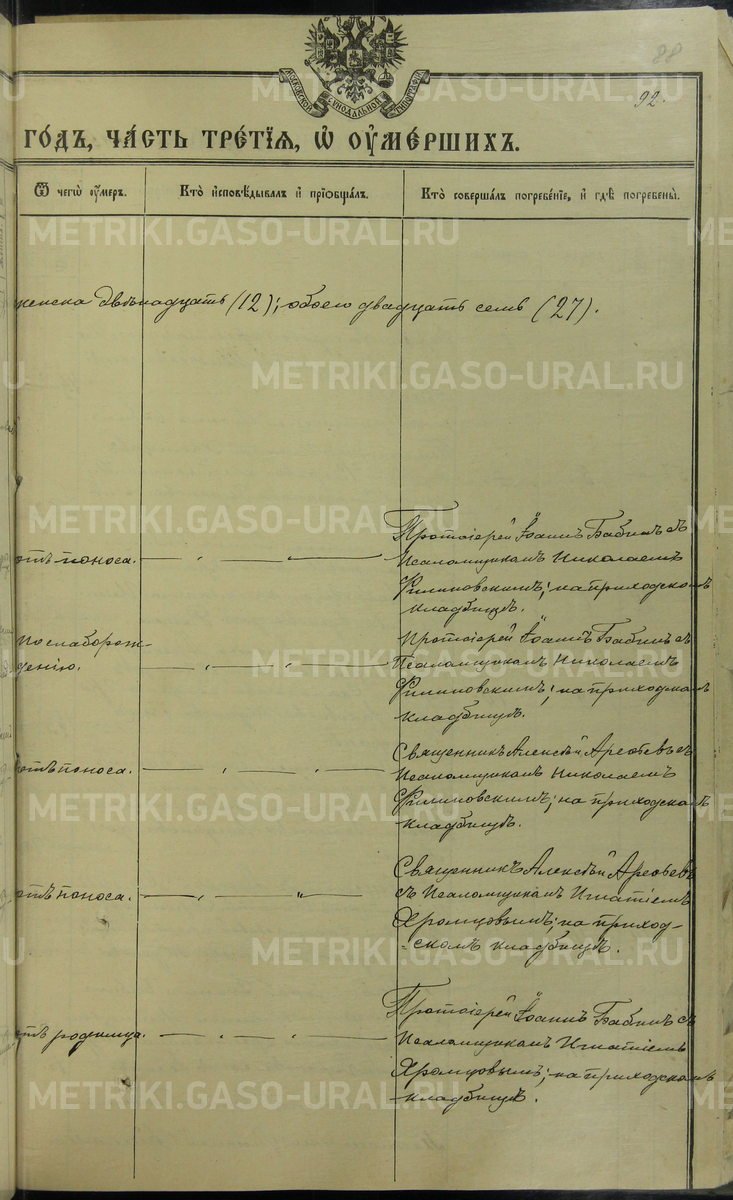 88
92.
МОСКОВСКОЙ СѴНОДАЛЬНОЙ ТИПОГРАФІИ
ГО́ДЪ, ЧА́СТЬ ТРЕ́ТІѦ, Ѡ҆ ОУ҆МЕ́РШИХЪ.
Ѿ чегѡ̀ оу҆́меръ.
Кто̀ и҆сповѣ́дывалъ и҆ прїѡбща́лъ.
Кто̀ соверша́лъ погребе́нїе, и҆ гдѣ̀ погребены̀.
женска двѣнадцать (12); обоего двадцать семь (27).
отъ поноса.
Протоіерей Іоаннъ Бабинъ съ
Псаломщикомъ Николаемъ
Филиповскимъ; на приходскомъ
кладбищѣ.
по слаборож-
денію.
Протоіерей Іоаннъ Бабинъ съ
Псаломщикомъ Николаемъ
Филиповскимъ; на приходскомъ
кладбищѣ.
отъ поноса.
Священникъ Алексѣй Арефьевъ съ
Псаломщикомъ Николаемъ
Филиповскимъ; на приходскомъ
кладбищѣ.
отъ поноса.
Священникъ Алексѣй Арефьевъ
съ Псаломщикомъ Игнатіемъ
Хромцовымъ; на приход-
скомъ кладбищѣ.
отъ родимца.
Протоіерей Іоаннъ Бабинъ съ
Псаломщикомъ Игнатіемъ
Хромцовымъ; на приходскомъ
кладбищѣ.
METRIKI.GASO-URAL.RU